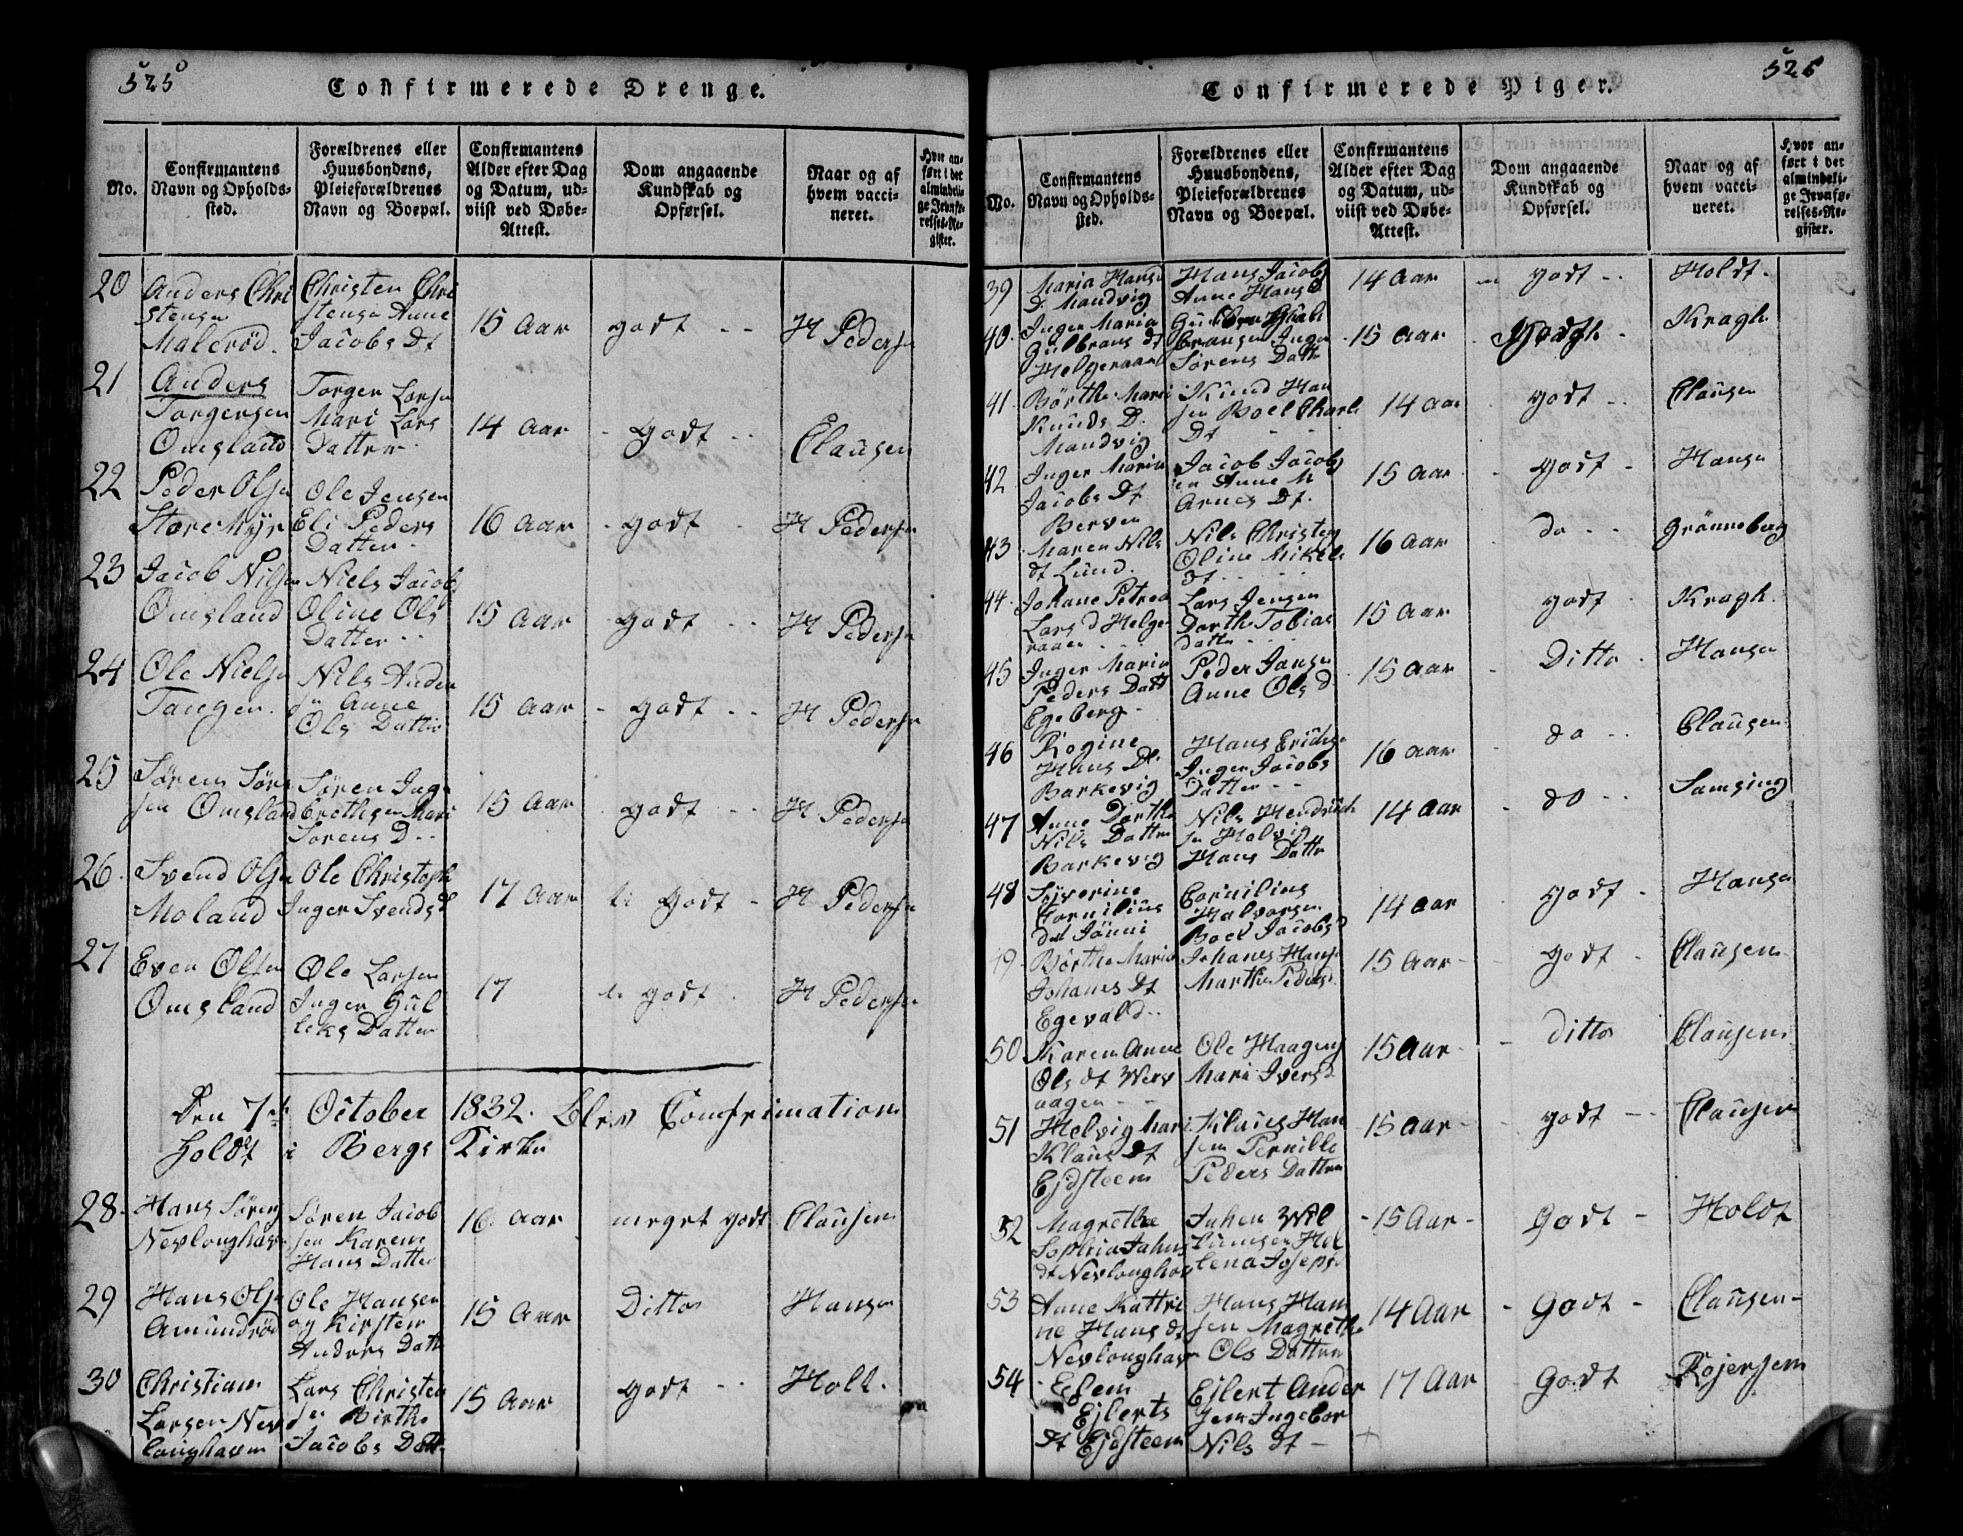 525
Confirmerede Drenge.
No.
Confirmantens
Navn og Opholds-
sted.
Forældrenes eller
Huusbondens,
Pleieforældrenes
Navn og Boepæl.
Confirmantens
Alder efter Dag
og Datum, ud-
viist ved Døbe-
Attest.
Dom angaaende
Kundskab og
Opførsel.
Naar og af
hvem vacci-
neret.
Hvor an-
ført i det
almindeli-
ge Jevnfø-
relses-Re-
gister.
20
Anders Chri
stensen
Malerød.
Christen Chri
stensen Anne
Jacobs Dt
15 Aar
godt
H Pedersen
21
Anders
Torgersen
Omsland
Torger Larsen
Mari Lars
Datter
14 Aar
Godt
Clausen
22
Peder Olsen
Store Myr
Ole Jensen
Eli Peders
Datter
16 Aar
godt
H Pedersen
23
Jacob Nilsen
Omsland
Niels Jacobs
Oline Ols
Datter
15 Aar
godt
H Pedersen
24
Ole Nielsen
Tangen.
Nils Ander
sen Anne
Ols Datter
15 Aar
godt
H Pedersen
25
Søren Søren
sen Omsland
Søren Inge
brethsen Mari
Sørens D
15 Aar
godt
H Pedersen
26.
Svend Olsen
Moland
Ole Christoph
Inger Svends d
17 Aar
Godt
H Pedersen
27
Even Olsen
Omsland
Ole Larsen
Inger Gul
leks Datter
17
godt
H Pedersen
Den 7de October 1832. Blev Confrimation
holdt i Bergs Kirke
28.
Hans Sørens
Nevlonghavn
Søren Jacob
sen Karen
Hans Datter
16 Aar
meget godt
Clausen
29
Hans Olsen
Amundrød
Ole Hansen
og Kirsten
Anders Datt
15 Aar
Ditto
Hansen
30
Christian
Larsen Nev
longhavn
Lars Christen
sen Birthe
Jacobs Datt
15 Aar
godt
Holt.
526
Confirmerede Piger.
No.
Confirmantens
Navn og Opholds-
sted.
Forældrenes eller
Huusbondens,
Pleieforældrenes
Navn og Boepæl.
Confirmantens
Alder efter Dag
og Datum, ud-
viist ved Døbe-
Attest.
Dom angaaende
Kundskab og
Opførsel.
Naar og af
hvem vacci-
neret.
Hvor an-
ført i det
almindeli-
ge Jevnfø-
relses-Re-
gister.
39
Maria Hans
D. Mandvig
Hans Jacobs
Anne Hans D
14 Aar
godt
Holdt.
40.
Inger Maria
Gulbrans dt
Helgeraaen
Inger
Sørens Datt
15 Aar
Kragh
41.
Børthe Mari
Knuds D.
Mandvig
Knud Han
sen Boel Charls
Dt
14 Aar
godt
Clausen
42
Inger Maria
Jacobs Dt
Berven
Jacob Jacobs
en Anne M
Arnes Dt.
15 Aar
godt
Hansen
43
Maren Nils
dt Lund.
Nils Christen
Oline Mikels
dt
16 Aar
do
Grønneberg
44.
Johane Petrea
Lars d Helge
raaen
Lars Jensen
Dorthe Tobias
datter
15 Aar
godt
Kragh.
45
Inger Maria
Peders Datt
Egeberg
Peder Jansen
Anne Ols d
15 Aar
Ditto
Hansen
46
Rogine
Hans Dt.
Barkevig
Hans Erichsen
Inger Jacobs
Datter
16 Aar
do
Clausen
47
Anne Dorthe
Nils Datter
Barkevig
Nils Hendrich
sen Helvig
Hans Datter
14 Aar
do
Samsing
48
Syverine
Cornilius
dat Jønni
Cornilius
Halvorsen
Boel Jacobs d
14 Aar
godt
Hansen
49.
Børthe Maria
Johanes Dt
Egevald
Johanes Hans
Marthe Peders
15 Aar
godt
Clausen
50
Karen Anne
Ols dt Werv
aagen
Ole Haagens
Mari Ivers d
15 Aar
ditto
Clausen
51
Helvig Mari
Klaus dt
Ejdsteen
Klaues Han
sen Pernille
Peders Datter
15 Aar
godt
Clausen
52
Magrethe
Sophia Jahns
dt Nevlonghav
Jahen Wil
lumsen Hel
lena Joseps
15 Aar
Godt
Holdt
53
Anne Kattri
ne Hans dt
Nevlonghavn
Hans Han
sen Magrethe
Ols Datter
14 Aar
Godt
Clausen
54
Ellen
Ejlerts
dt Ejdsteen
Ejlert Ander
sen Ingebor
Nils dt
17 Aar
Godt
Røjersen